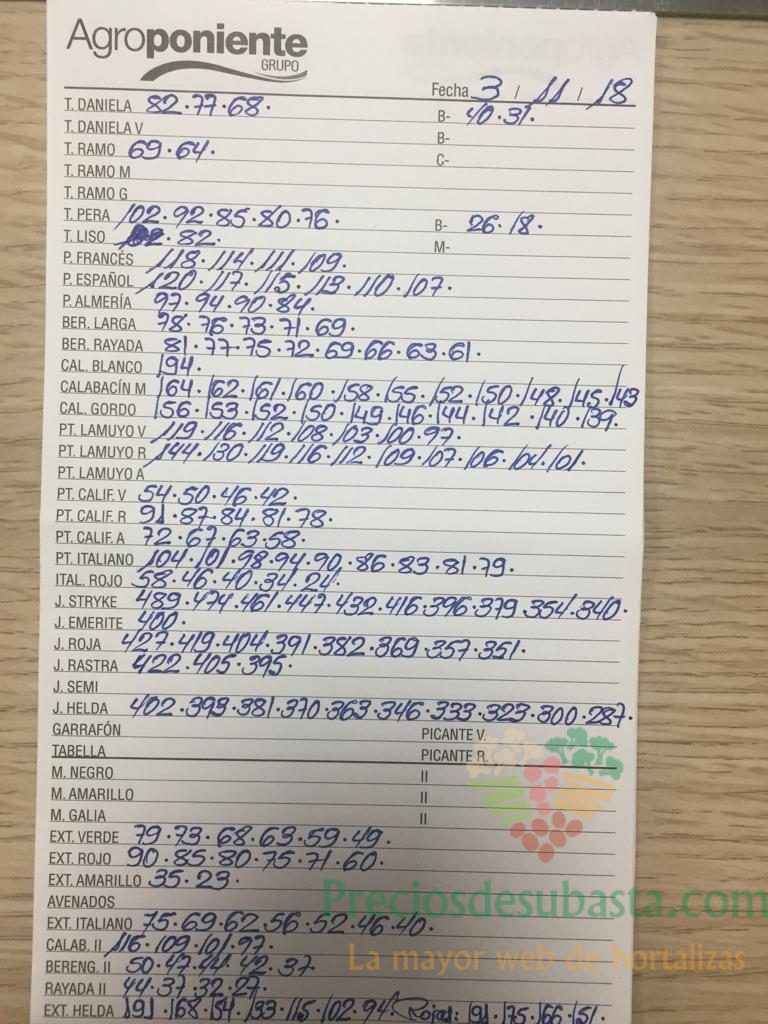 Agroponiente
GRUPO
Fecha 3 / 11 / 18
T. DANIELA 82.77.68. B- 40.31.
T. DANELA V B-
T. RAMO 69.64. C-
T. RAMO M
T. RAMO G
T. PERA 102.92.85.80.76. B- 26.18.
T. LISO 82. M-
P. FRANCÉS 118.114.111.109.
P. ESPAÑOL 120.117.115.113.110.107.
P. ALMERÍA 97.94.90.84.
BER. LARGA 78.76.73.71.69.
BER. RAYADA 81.77.75.72.69.66.63.61.
CAL. BLANCO 194.
CALABACÍN M 164.162.161.160.158.155.152.150.148.145.143
CAL. GORDO 156.153.152.150.149.146.144.142.140.139.
PT. LAMUYO V 119.116.112.108.103.100.97.
PT. LAMUYO R 144.130.119.116.112.109.107.106.104.101.
PT. LAMUYO A
PT. CALIF. V 54.50.46.42.
PT. CALIF. R 91.87.84.81.78.
PT. CALIF. A 72.67.63.58.
PT. ITALIANO 104.101.98.94.90.86.83.81.79.
ITAL. ROJO 58.46.40.34.24.
J. STRYKE 489.474.461.447.432.416.396.379.354.340.
J. EMERITE 400.
J. ROJA 427.419.404.391.382.369.357.351.
J. RASTRA 422.405.395.
J. SEMI
J. HELDA 402.393.381.370.363.346.333.323.300.287.
GARRAFÓN PICANTE V.
TABELLA PICANTE R.
M. NEGRO II
M. AMARILLO II
M. GALIA II
EXT. VERDE 79.73.68.63.59.49.
EXT. ROJO 90.85.80.75.71.60.
EXT. AMARILLO 35.23.
AVENADOS
Preciosdesubasta.com
EXT. ITALIANO 75.69.62.56.52.46.40.
CALAB. II 116.109.101.97.
La mayor web de hortalizas
BERENG. II 50.47.44.42.37.
RAYADA II 44.37.32.27.
EXT. HELDA 191.168.154.133.115.102.94. Rojas: 191.175.166.151.